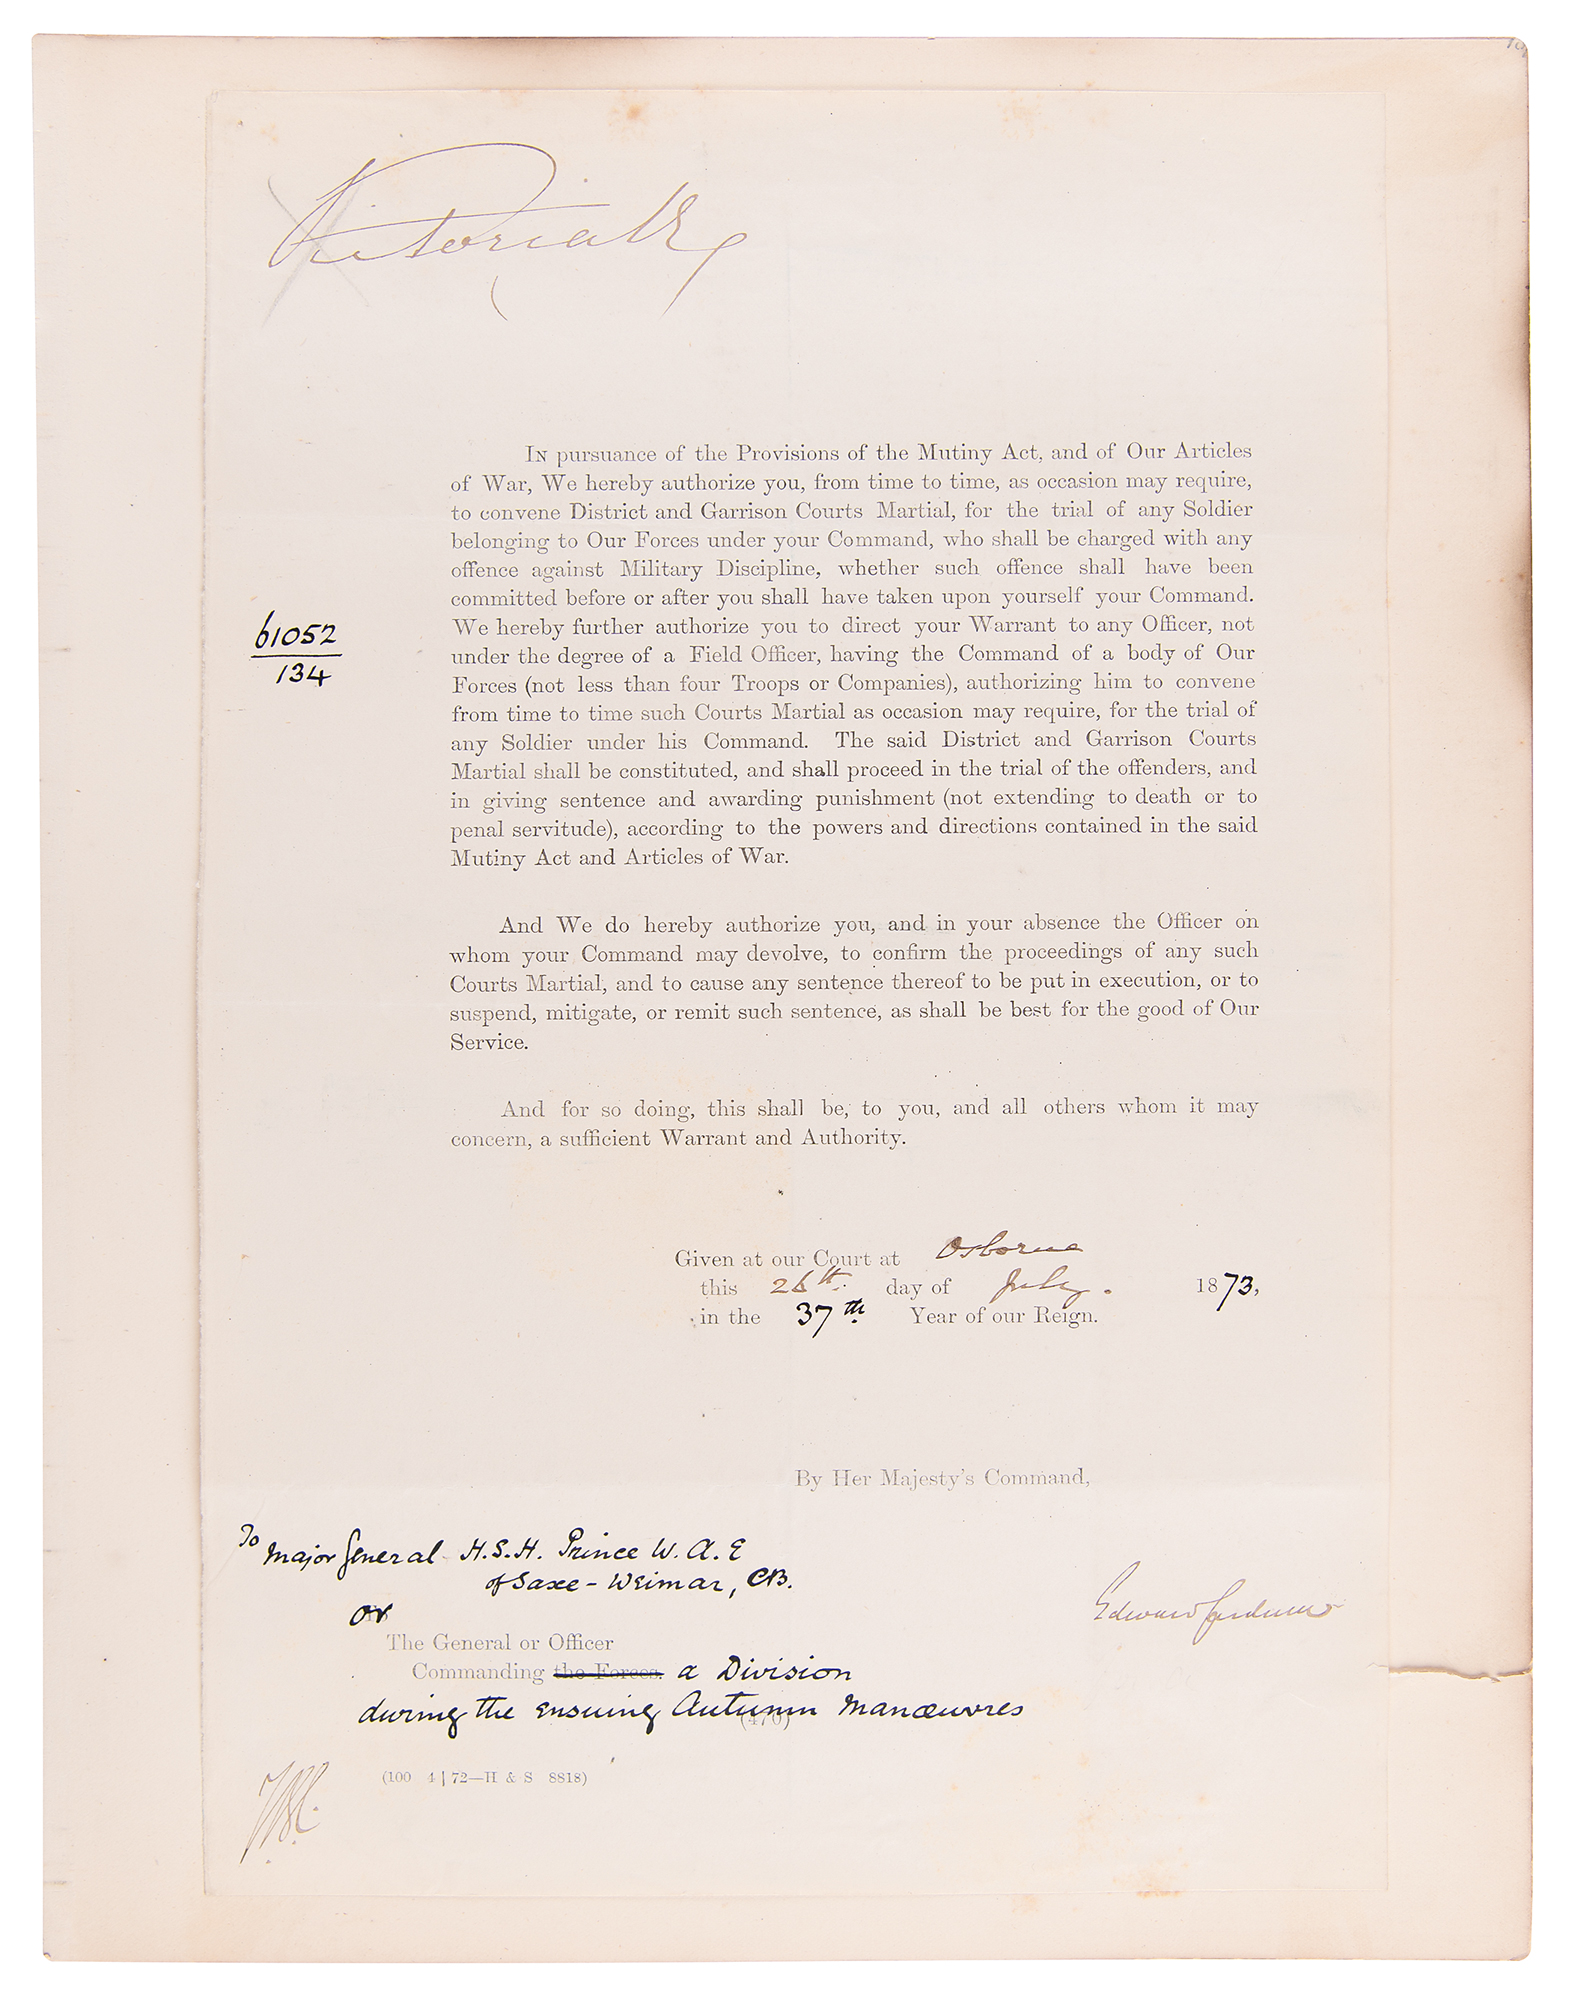 Victoria R
In pursuance of the Provisions of the Mutiny Act, and of Our Articles
of War, We hereby authorize you, from time to time, as occasion may require,
to convene District and Garrison Courts Martial, for the trial of any Soldier
belonging to Our Forces under your Command, who shall be charged with any
offence against Military Discipline, whether such offence shall have been
committed before or after you shall have taken upon yourself your Command.
We hereby further authorize you to direct your Warrant to any Officer, not
under the degree of a Field Officer, having the Command of a body of Our
Forces (not less than four Troops or Companies), authorizing him to convene
from time to time such Courts Martial as occasion may require, for the trial of
any Soldier under his Command. The said District and Garrison Courts
Martial shall be constituted, and shall proceed in the trial of the offenders, and
in giving sentence and awarding punishment (not extending to death or to
penal servitude), according to the powers and directions contained in the said
Mutiny Act and Articles of War.
61052
134
And We do hereby authorize you, and in your absence the Officer on
whom your Command may devolve, to confirm the proceedings of any such
Courts Martial, and to cause any sentence thereof to be put in execution, or to
suspend, mitigate, or remit such sentence, as shall be best for the good of Our
Service.
And for so doing, this shall be, to you, and all others whom it may
concern, a sufficient Warrant and Authority.
Given at our Court at Osborne
this 26th. day of July. 1873,
in the 37th. Year of our Reign.
By Her Majesty's Command,
To Major General H.S.H. Prince W. A. E
of Saxe-Weimar, CB.
or
The General or Officer
Commanding the Forces. a Division
during the ensuing Autumn Manœuvres
(470)
Edward Cardwell
(100 4 | 72—H & S 8818)